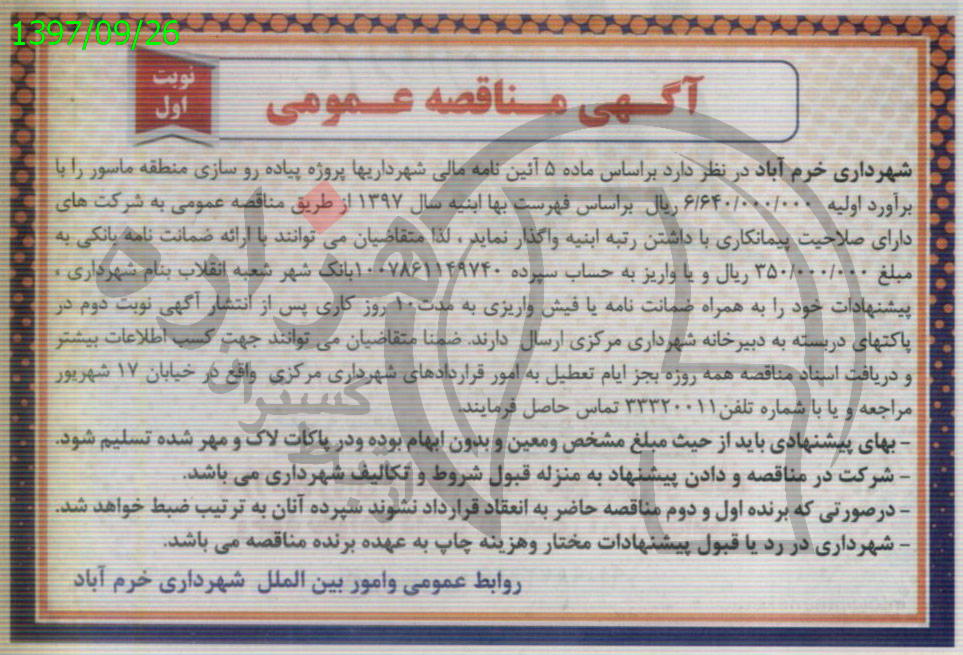 1397/09/26
نوبت
اول
آگهی مناقصه عمومی
شهرداری خرم آباد در نظر دارد براساس ماده ۵ آئین نامه مالی شهرداریها پروژه پیاده رو سازی منطقه ماسور را با
برآورد اولیه ۶/۶۴۰/۰۰۰/۰۰۰ ریال براساس فهرست بها ابنیه سال ۱۳۹۷ از طریق مناقصه عمومی به شرکت های
دارای صلاحیت پیمانکاری با داشتن رتبه ابنیه واگذار نماید ، لذا متقاضیان می توانند با ارائه ضمانت نامه بانکی به
مبلغ ۳۵۰/۰۰۰/۰۰۰ ریال و یا واریز به حساب سپرده ۱۰۰۷۸۶۱۱۴۹۷۴۰بانک شهر شعبه انقلاب بنام شهرداری ،
پیشنهادات خود را به همراه ضمانت نامه یا فیش واریزی به مدت۱۰ روز کاری پس از انتشار آگهی نوبت دوم در
پاکتهای دربسته به دبیرخانه شهرداری مرکزی ارسال دارند. ضمنا متقاضیان می توانند جهت کسب اطلاعات بیشتر
و دریافت اسناد مناقصه همه روزه بجز ایام تعطیل به امور قراردادهای شهرداری مرکزی واقع در خیابان ۱۷ شهریور
مراجعه و یا با شماره تلفن۳۳۳۲۰۰۱۱ تماس حاصل فرمایند.
- بهای پیشنهادی باید از حیث مبلغ مشخص ومعین و بدون ابهام بوده ودر پاکات لاک و مهر شده تسلیم شود.
- شرکت در مناقصه و دادن پیشنهاد به منزله قبول شروط و تکالیف شهرداری می باشد.
- درصورتی که برنده اول و دوم مناقصه حاضر به انعقاد قرارداد نشوند سپرده آنان به ترتیب ضبط خواهد شد.
- شهرداری در رد یا قبول پیشنهادات مختار وهزینه چاپ به عهده برنده مناقصه می باشد.
روابط عمومی وامور بین الملل شهرداری خرم آباد